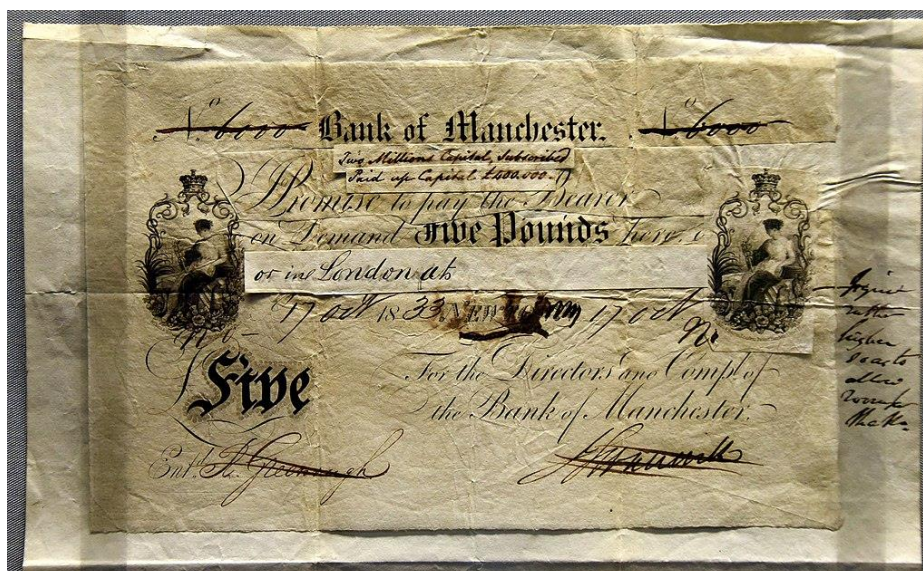 No 6000 Bank of Manchester. No 6000
Two Millions Capital, Subscribed
Paid up Capital £400,000
Promise to pay the Bearer
on Demand Five Pounds here,
or in London at
17 Oct 1833 17 Oct
No
Five
For the Directors and Compy. of
the Bank of Manchester.
Entd.
figure
rather
higher
so as to
allow
room for
the No